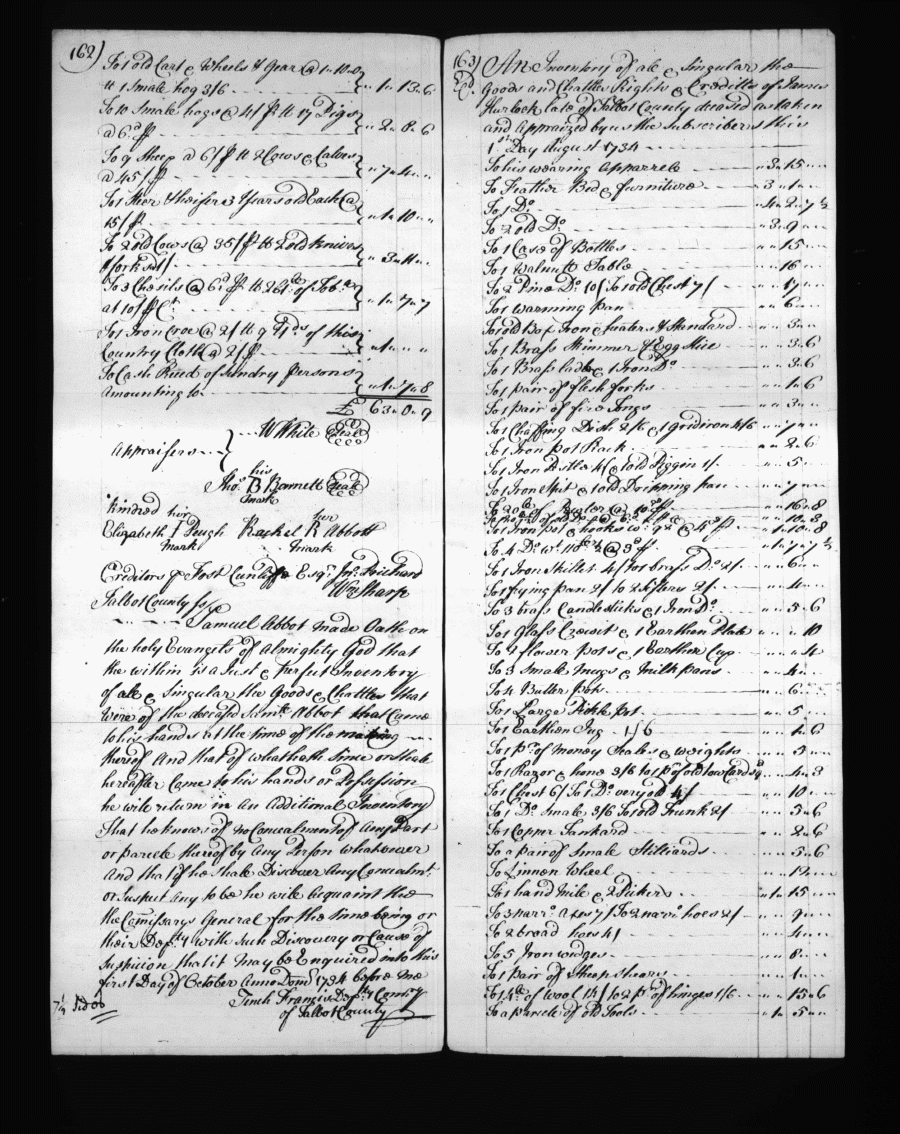 162)
To 1 old Cart & Wheels & Gear @ 1"10"0
to 1 Smale hog 3/6 " 1 " 13 " 6
To 10 Smale hogs @ 4/ ₱ to 17 Pigs
@ 6d ₱ " 2 " 8 " 6
To 9 Sheep @ 6/ ₱ to 2 Cows & Calves
@ 45/ ₱ " 7 " 4 " "
To 1 Steer & heifer 3 Years old Each @
15/ ₱ " 1 " 10 " "
To 2 old Cows @ 35/ ₱ to 2 old knives
& forks at 1/ " 3 " 11 "
To 3 Chesils @ 6d ₱ to 261 lb of Tobo
at 10/ ₱ Ct " 1 " 7 " 7
To 1 Iron Croe @ 2/ to 9 Yds of this
Country Cloth @ 2/ ₱ " 1 " " "
To Cash Reced of Sundry persons
Amounting to " 1 " 7 " 8
£ 63 " 0 " 9
W White Seal
Appraisers
his
Thos B Barnett Seal
mark
kindred her her
Elizabeth I Pough Rachel R Abbott
mark mark
Creditors Foster Cunliffe Esqr Jno Prichard
Wm Sharp
Talbot County Ss
Samuel Abbot made Oath on
the holy Evangels of Almighty God that
the within is a Just & perfect Inventory
of all & Singular the Goods & Chattles that
were of the deceased Abbot that Came
to his hands at the time of the making
thereof And that of what hath Since or shall
hereafter Come to his hands or Possession
he will return in an Additional Inventory
That he knows of no Concealment of Any Part
or parcele thereof by Any Person whatsoever
And that if he Shall Discover Any Concealmt
or Suspect Any to be he will Acquaint the
the Comissarys General for the time being or
their Depty with such Discovery or Cause of
Suspicion that it may be Enquired into this
first Day of October Anno Dom 1734 before me
Tench Francis Depty Comry
of Talbot County
163) An Inventory of all & Singular the
Goods and Chattles Rights & Creditts of James
Hurlock late of Talbot County deceased as taken
and Appraized by us the Subscribers this
1st Day August 1734
To his wearing Apparrele " 3 " 15 "
To Feather Bed & furniture " 3 " 1 "
To 1 Do " 4 " 2 " 7 ½
To 2 old Do " 3 " 9 "
To 1 Case of Bottles " " 15 "
To 1 Walnutt Table " " 16 "
To 2 Pine Do 10/ To 1 old Chest 7/ " " 17 "
To 1 Warming pan " " 6 "
To 1 old Box Iron heaters & Standard " " 3 "
To 1 Brass Skimmer & Egg Slice " " 3 " 6
To 1 Brass ladle & 1 Iron Do " " 3 " 6
To 1 pair of flesh forks " " 1 " 6
To 1 pair of fire Tongs " " 3 "
To 1 Chaffing Dish 2/6 & 1 Gridiron 4/6 " " 7 "
To 1 Iron pot Rack " " 2 " 6
To 1 Iron Kittle 4/ & 1 old Piggin 1/ " " 5 "
To 1 Iron Spit & 1 old Dripping Pan " " 7 "
To 20 lb of Pewter @ 10d ₱ " " 16 " 8
" " 10 " 8
To 4 Do wt @ 3d ₱ " 1 " 7 " 7 ½
To 1 Iron Skillet 4/ to 1 brass Do 2/ " " 6 "
To 1 frying pan 2/ to 2 Sifters 2/ " " 4 "
To 3 brass Candlesticks & 1 Iron Do " " 5 " 6
To 1 Glass Crewit & 1 Earthen Plate " " " 10
To 2 flower pots & 1 Earthen Cup " " " 4
To 3 Smale Mugs & milk pans " " 4 "
To 4 Butter pots " " 6 "
To 1 Large Pickle pot " " 5 "
To 1 Earthen Jug 1/6 " " 1 " 6
To 1 pr of money Scales & weights " " 5 "
To 1 Razor & hone 3/6 to 1 pr of old tow Cards 9d " " 4 " 3
To 1 Chest 6/ To 1 Do very old 4/ " " 10 "
To 1 Do Smale 3/6 To 1 old Trunk 2/ " " 5 " 6
To 1 Copper Tankard " " 2 " 6
To a pair of Smale Stilliards " " 5 " 6
To Linnen Wheel " " 12 "
To 1 hand Mile & 2 Pickers " 1 " 15 "
To 3 narro Axes 7/ To 2 narro hoes 2/ " " 9 "
To 2 broad hoes 4/ " " 4 "
To 5 Iron wedges " " 8 "
To 1 Pair of Sheep Shears " " 1 "
To 14 lb of Wool 14/ to 2 pr of hinges 1/6 " " 15 " 6
To a parcele of old Tools " 1 " 5 "